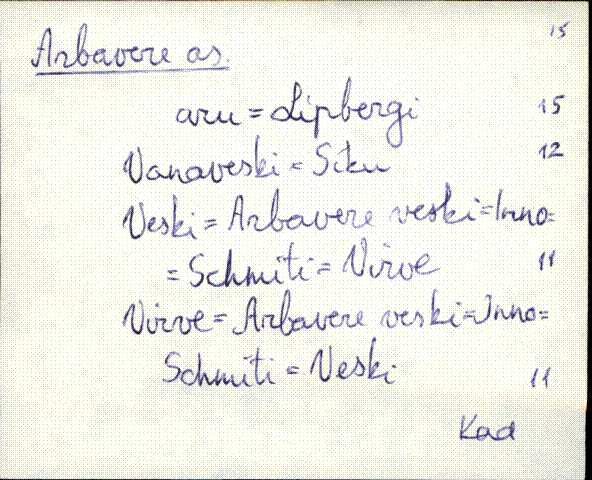 15
Arbavere as.
aru = Lipbergi 15
Vanaveski = Siku 12
Veski = Arbavere veski = Inno =
= Schmiti = Virve 11
Virve = Arbavere veski = Inno =
Schmiti = Veski 11
Kad